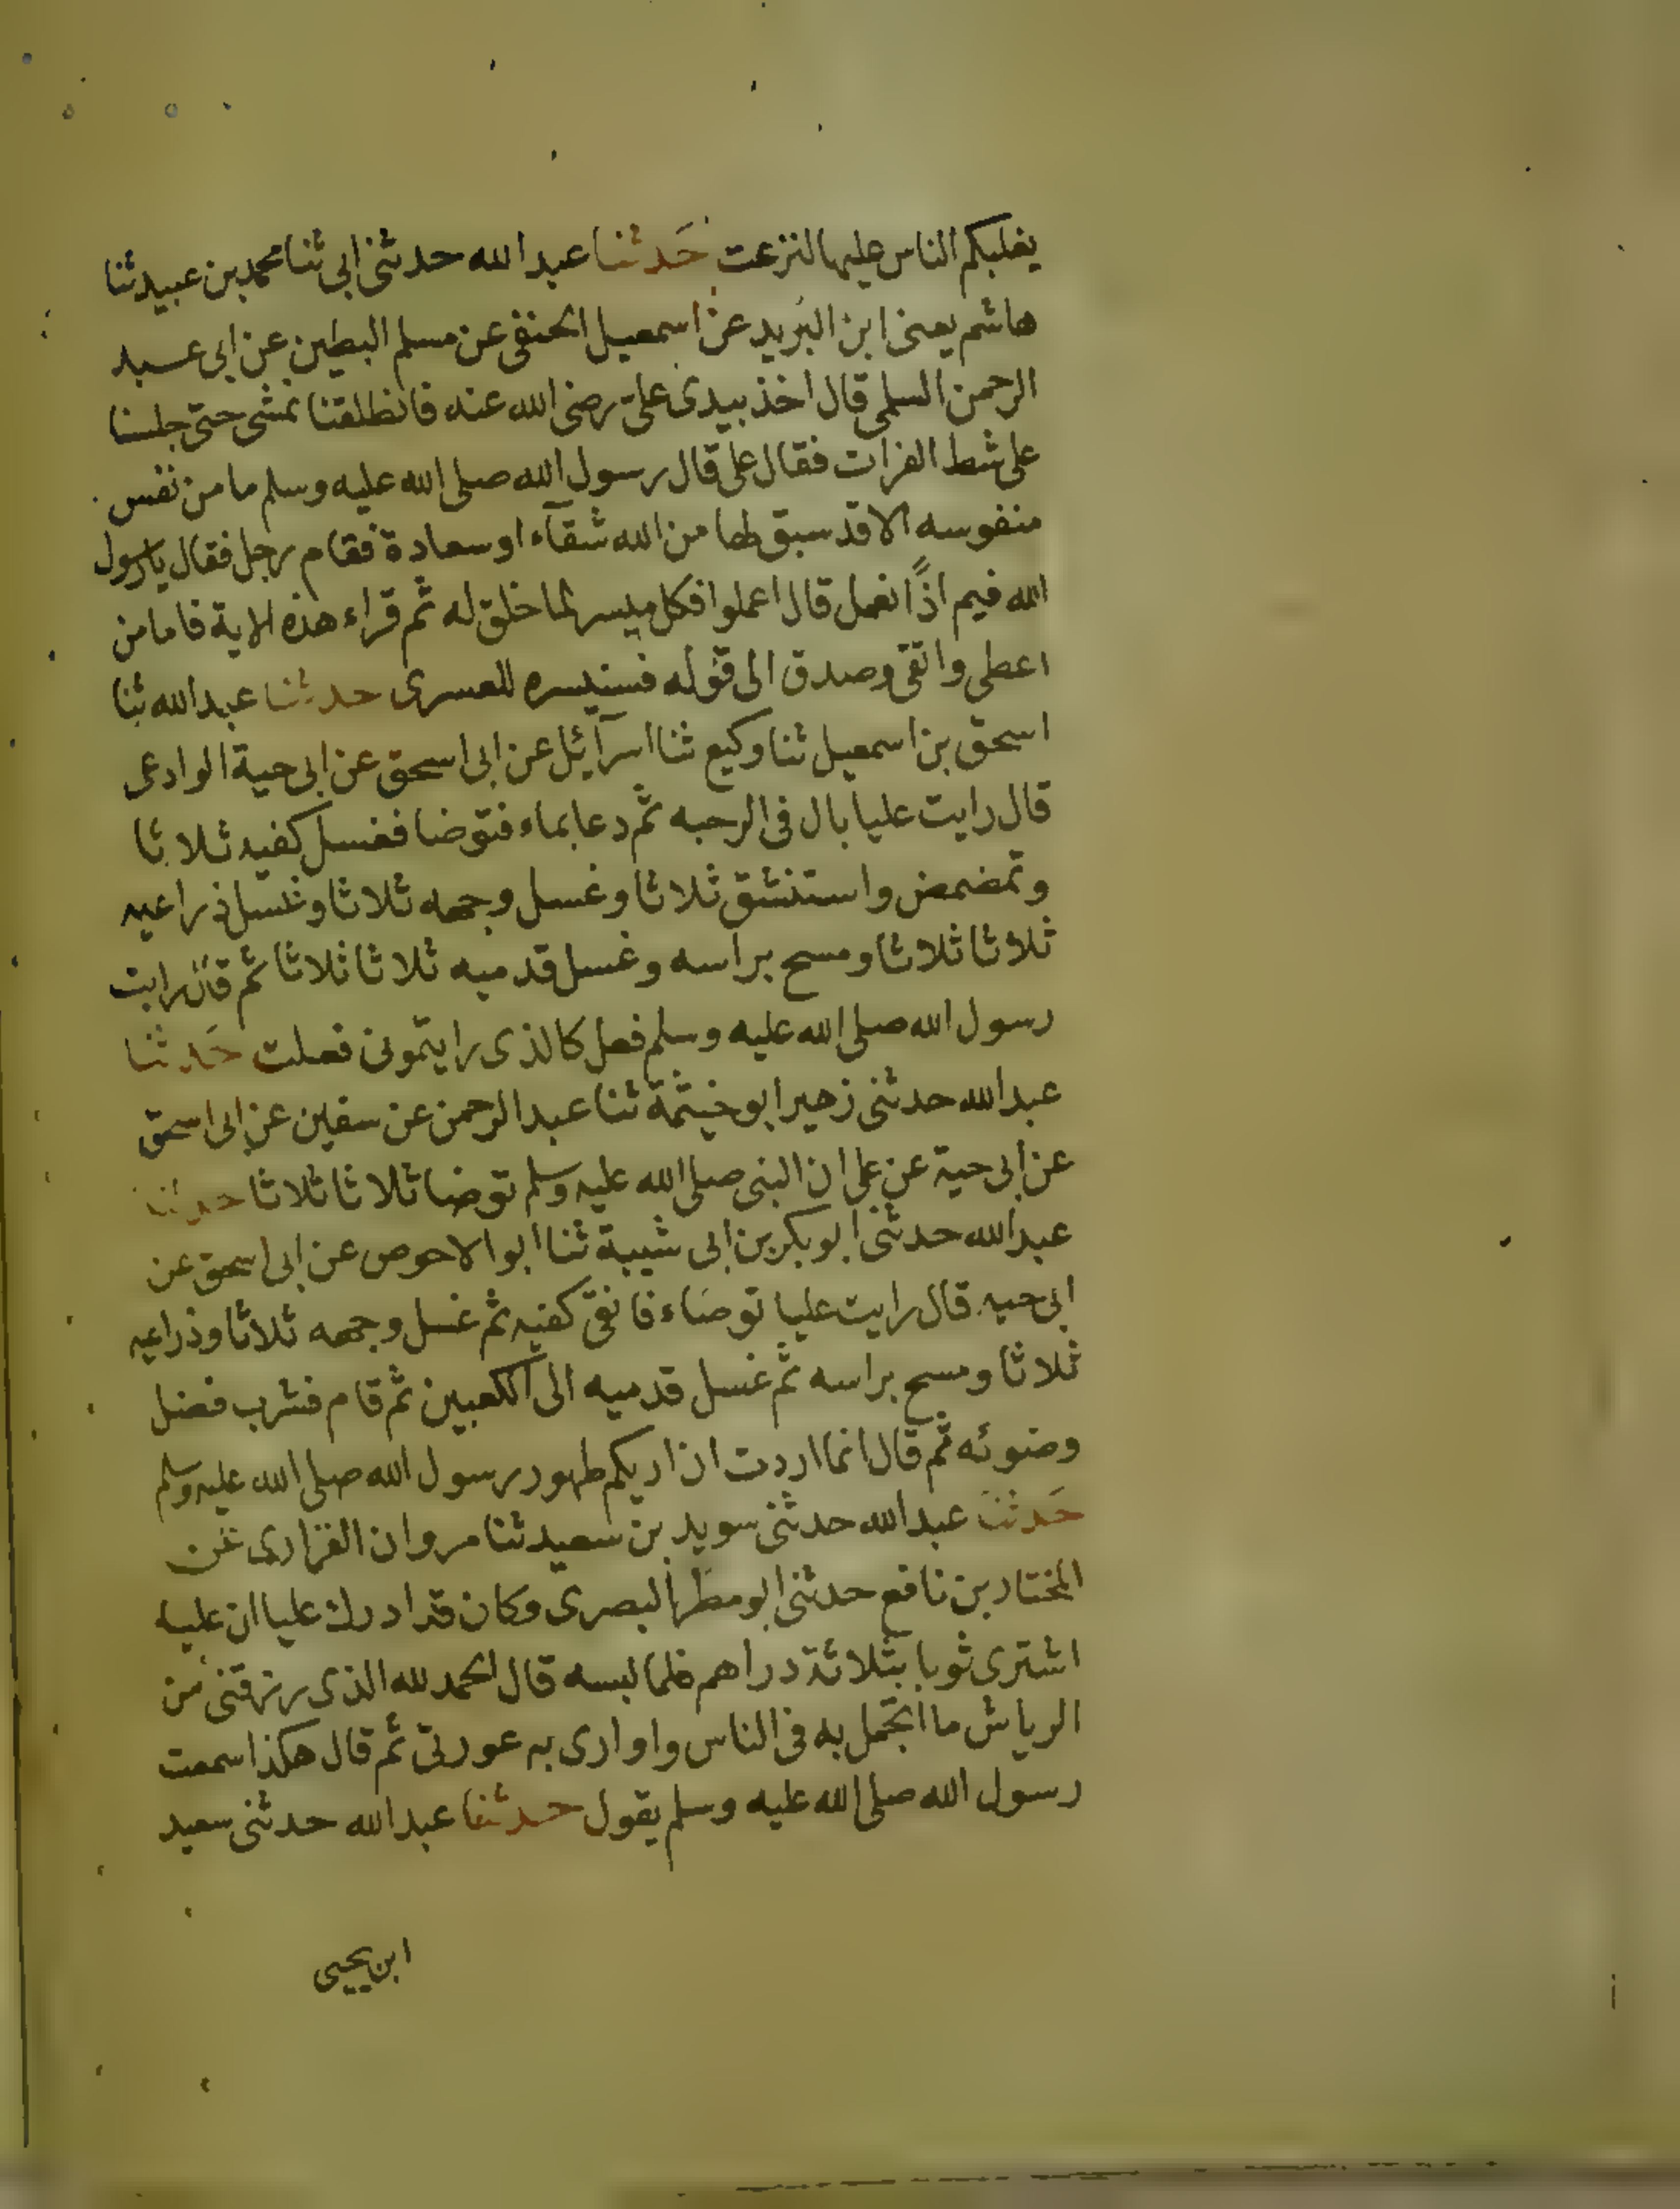 يغلبكم الناس عليها لنزعت حدثنا عبد الله حدثني ابى ثنا محمد بن عبيد ثنا
هاشم يعنى ابن البريد عن اسمعيل الحنفى عن مسلم البطين عن ابى عبد
الرحمن السلمى قال اخذ بيدى علىّ رضى الله عنه فانطلقنا نمشى حتى جلسنا
على شط الفرات فقال على قال رسول الله صلى الله عليه وسلم ما من نفس
منفوسه الا قد سبق لها من الله شقآء او سعادة فقام رجل فقال يا رسول
الله فيم اذًا نعمل قال اعملوا فكل ميسر لما خلق له ثم قراء هذه الاية فاما من
اعطى واتقى وصدق الى قوله فسنيسره للعسرى حدثنا عبد الله ثنا
اسحق بن اسمعيل ثنا وكيع ثنا اسرآئيل عن ابى اسحق عن ابى حية الوادعى
قال رايت عليا بال فى الرحبه ثم دعا بماء فتوضا فغسل كفيه ثلاثا
وتمضمض واستنشق ثلاثا وغسل وجهه ثلاثا وغسل ذراعيه
ثلاثا ثلاثا ومسح براسه وغسل قدميه ثلاثا ثلاثا ثم قال رايت
رسول الله صلى الله عليه وسلم فعل كالذى رايتمونى فعلت حدثنا
عبد الله حدثنى زهير ابو خيثمة ثنا عبد الرحمن عن سفين عن ابى اسحق
عن ابى حية عن على ان النبى صلى الله عليه وسلم توضا ثلاثا ثلاثا حدثنا
عبد الله حدثنى ابو بكر بن ابى شيبة ثنا ابو الاحوص عن ابى اسحق عن
ابى حيه قال رايت عليا توضاء فانقى كفيه ثم غسل وجهه ثلاثا وذراعيه
ثلاثا ومسح براسه ثم غسل قدميه الى الكعبين ثم قام فشرب فضل
وضوئه ثم قال انما اردت ان اريكم طهور رسول الله صلى الله عليه وسلم
حدثنا عبد الله حدثنى سويد بن سعيد ثنا مروان الفزارى عن
المختار بن نافع حدثنى ابو مطر البصرى وكان قد ادرك عليا ان عليا
اشترى ثوبا بثلاثة دراهم فلما لبسه قال الحمد لله الذى رزقنى من
الرياش ما اتجمل به فى الناس واوارى به عورتى ثم قال هكذا سمعت
رسول الله صلى الله عليه وسلم يقول حدثنا عبد الله حدثنى سعيد
ابن يحيى